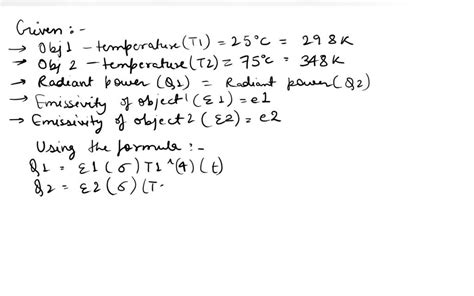 Given :-
→ Obj 1 - temperature (T1) = 25°C = 298K
→ Obj 2 - temperature (T2) = 75°C = 348K
→ Radiant power (Q1) = Radiant power (Q2)
→ Emissivity of object 1 (ε1) = e1
→ Emissivity of object 2 (ε2) = e2
Using the formula :-
Q1 = ε1 (σ) T1^(4) (t)
Q2 = ε2 (σ) (T